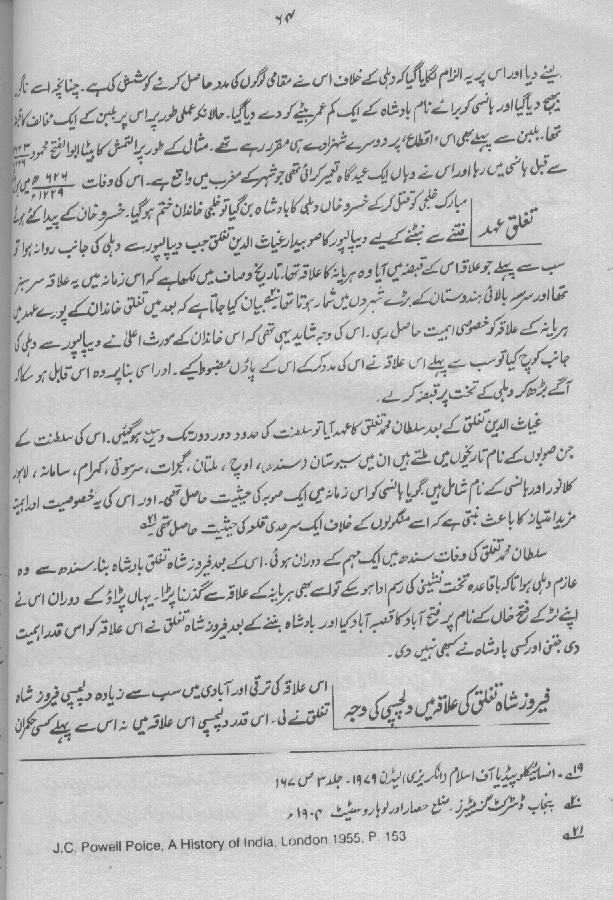 ۶۴
لینے دیا اور اس پر یہ الزام لگایا گیا کہ دہلی کے خلاف اس نے مقامی لوگوں کی مدد حاصل کرنے کو شش کی ہے۔ چنانچہ اسے ناگور
بھیج دیا گیا اور ہانسی کو برائے نام بادشاہ کے ایک کم عمر بیٹے کو دے دیا گیا۔ حالانکہ عملی طور پر اس پر بلبن کے ایک مخالف کا قبضہ
تھا۔ بلبن سے پہلے بھی اس "اقطاع" پر دوسرے شہزادے ہی مقرر رہے تھے۔ مثال کے طور پر التمش کا بیٹا ابوالفتح محمود ۶۲۳
سے قبل ہانسی میں رہا اور اس نے وہاں ایک عید گاہ تعمیر کرائی تھی جو شہر کے مغرب میں واقع ہے۔ اس کی وفات ۶۲۶ھ / ۱۲۲۹ء میں
تغلق عہد
مبارک خلجی کو قتل کر کے خسرو خاں دہلی کا بادشاہ بن گیا تو خلجی خاندان ختم ہو گیا۔ خسرو خان کے پیدا کئے ہوئے
فتنے سے نپٹنے کے لیے دیپالپور کا صوبیدار غیاث الدین تغلق جب دیپالپور سے دہلی کی جانب روانہ ہوا تو
سب سے پہلے جو علاقہ اس کے قبضہ میں آیا وہ ہریانہ کا علاقہ تھا۔ تاریخ وصاف میں لکھا ہے کہ اس زمانہ میں یہ علاقہ سرسبز
تھا اور سرسہ بالائی ہندوستان کے بڑے شہروں میں شمار ہوتا تھا۔ بیان کیا جاتا ہے کہ بعد میں تغلق خاندان کے پورے عہد میں
ہریانہ کے علاقہ کو خصوصی اہمیت حاصل رہی۔ اس کی وجہ شاید یہی تھی کہ اس خاندان کے مورث اعلیٰ نے دیپالپور سے دہلی کی
جانب کوچ کیا تو سب سے پہلے اس علاقہ نے اس کی مدد کر کے اس کے پاؤں مضبوط کیے۔ اور اسی بنا پر وہ اس قابل ہو سکا کہ
آگے بڑھ کر دہلی کے تخت پر قبضہ کر لے۔
غیاث الدین تغلق کے بعد سلطان محمد تغلق کا عہد آیا تو سلطنت کی حدود دور دور تک وسیع ہو گئیں۔ اس کی سلطنت کے
جن صوبوں کے نام تاریخوں میں ملتے ہیں ان میں سیوستان (سندھ)، اوچ، ملتان، گجرات، سرسوتی، کہرام، سامانہ، لاہور
کلانور اور ہانسی کے نام شامل ہیں۔ گویا ہانسی کو اس زمانہ میں ایک صوبہ کی حیثیت حاصل تھی۔ اور اس کی یہ خصوصیت اور اہمیت
مزید امتیاز کا باعث بنتی ہے کہ اسے منگولوں کے خلاف ایک سرحدی قلعہ کی حیثیت حاصل تھی۔ ۲۱؎
سلطان محمد تغلق کی وفات سندھ میں ایک مہم کے دوران ہوئی۔ اس کے بعد فیروز شاہ تغلق بادشاہ بنا۔ سندھ سے وہ
عازم دہلی ہوا تا کہ باقاعدہ تخت نشینی کی رسم ادا ہو سکے تو اسے بھی ہریانہ کے علاقہ سے گذرنا پڑا۔ یہاں پڑاؤ کے دوران اس نے
اپنے لڑکے فتح خاں کے نام پر فتح آباد کا قصبہ آباد کیا اور بادشاہ بننے کے بعد فیروز شاہ تغلق نے اس علاقہ کو اس قدر اہمیت
دی جتنی اور کسی بادشاہ نے کبھی نہیں دی۔
فیروز شاہ تغلق کی علاقہ میں دلچسپی کی وجہ
اس علاقہ کی ترقی اور آبادی میں سب سے زیادہ دلچسپی فیروز شاہ
تغلق نے لی۔ اس قدر دلچسپی اس علاقہ میں نہ اس سے پہلے کسی حکمران
۱۹؎۔ انسائیکلو پیڈیا آف اسلام (انگریزی) لیڈن ۱۹۷۹۔ جلد ۳ ص ۱۶۷
۲۰؎ پنجاب ڈسٹرکٹ گزیٹیئرز۔ ضلع حصار اور لوہارو سٹیٹ ۱۹۰۴ء
۲۱؎ J.C. Powell Poice, A History of India, London 1955, P. 153